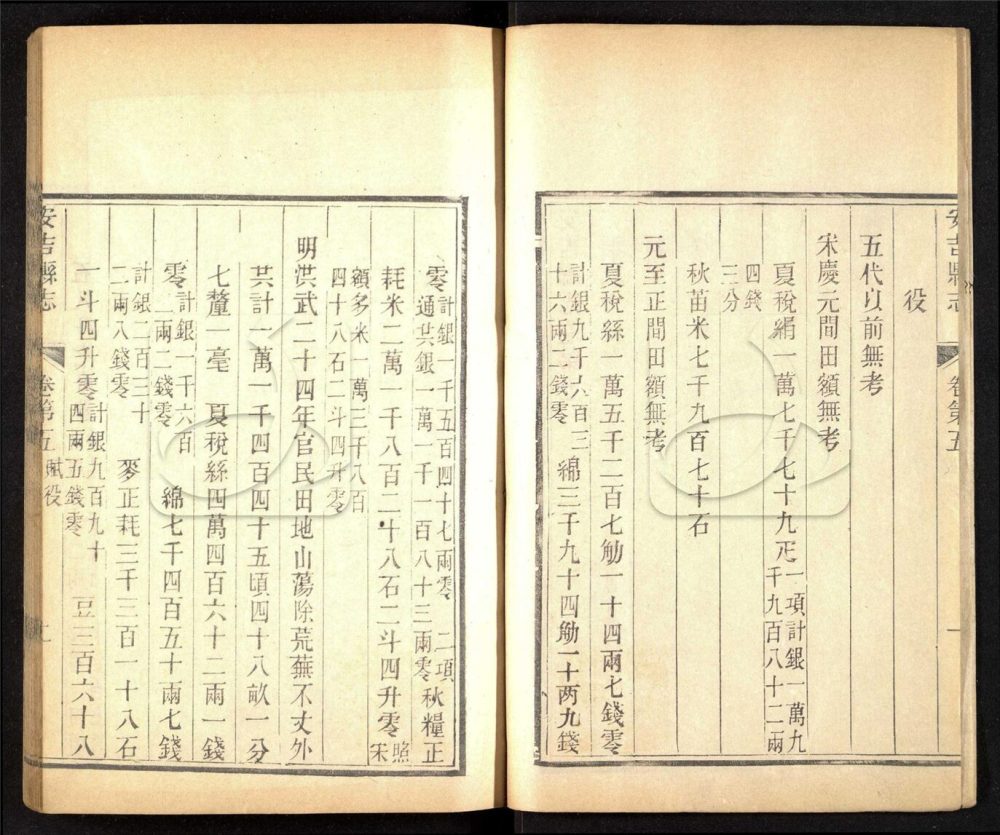 安吉縣志
卷第五
一
役
五代以前無考
宋慶元間田額無考
夏稅絹一萬七千七十九疋一項計銀一萬九
千九百八十二兩
四錢
三分
秋苗米七千九百七十石
元至正間田額無考
夏稅絲一萬五千二百七觔一十四兩七錢零
計銀九千六百三
十六兩二錢零
綿三千九十四觔一十两九錢
零
計銀一千五百四十七兩零 二項
通共銀一萬一千一百八十三兩零
秋糧正
耗米二萬一千八百二十八石二斗四升零
照
宋
額多米一萬三千八百
四十八石二斗四升零
明洪武二十四年官民田地山蕩除荒蕪不丈外
共計一萬一千四百四十五頃四十八畝一分
七釐一毫 夏稅絲四萬四百六十二兩一錢
零
計銀一千六百
一兩二錢零
綿七千四百五十兩七錢
計銀二百三十
二兩八錢零
麥正耗三千三百一十八石
一斗四升零
計銀九百九十
四兩五錢零
豆三百六十八
安吉縣志
卷第五 賦役